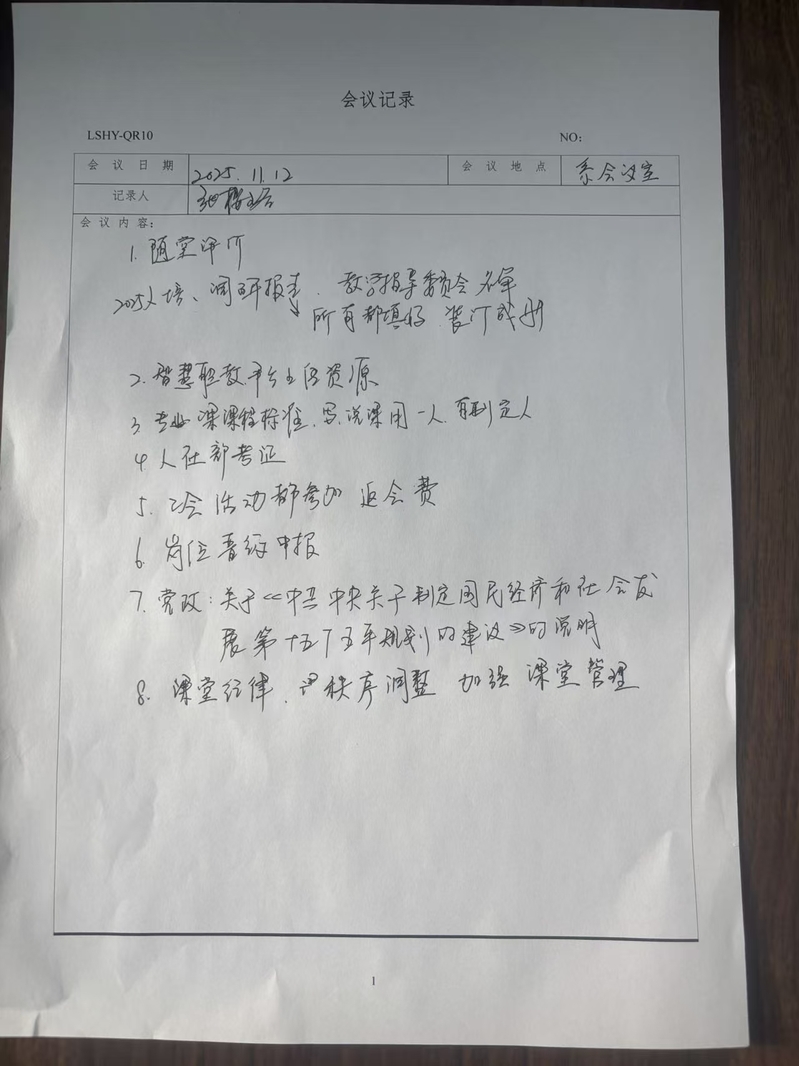 会议记录
LSHY-QR10 NO:
会议日期 2025.11.12 会议地点 系会议室
记录人
会议内容:
1. 随堂评价
2025人培、调研报告、教学指导委员会名单
所有都填好 装订成册
2. 智慧职教平台上传资源
3 专业课课程标准、写、说课用一人、再制定人
4 人社部考证
5. 工会活动都参加 返会费
6. 岗位晋级申报
7. 党政:关于《中共中央关于制定国民经济和社会发
展第十五个五年规划的建议》的说明
8. 课堂纪律、秩序调整 加强课堂管理
1